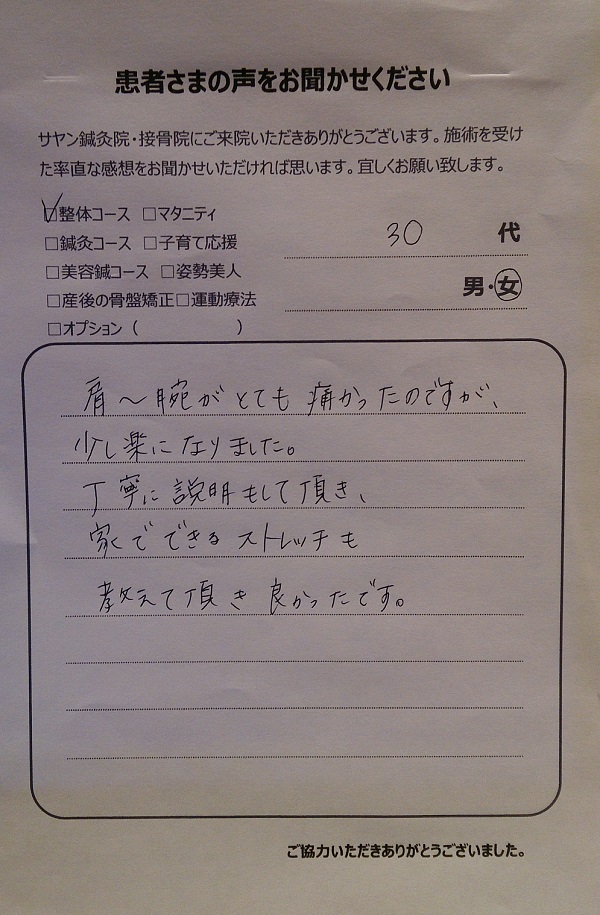 患者さまの声をお聞かせください
サヤン鍼灸院・接骨院にご来院いただきありがとうございます。施術を受け
た率直な感想をお聞かせいただければ思います。宜しくお願い致します。
☑整体コース □マタニティ
□鍼灸コース □子育て応援
□美容鍼コース □姿勢美人
□産後の骨盤矯正□運動療法
□オプション（ ）
30 代
男・女
肩～腕がとても痛かったのですが、
少し楽になりました。
丁寧に説明もして頂き、
家でできるストレッチも
教えて頂き良かったです。
ご協力いただきありがとうございました。